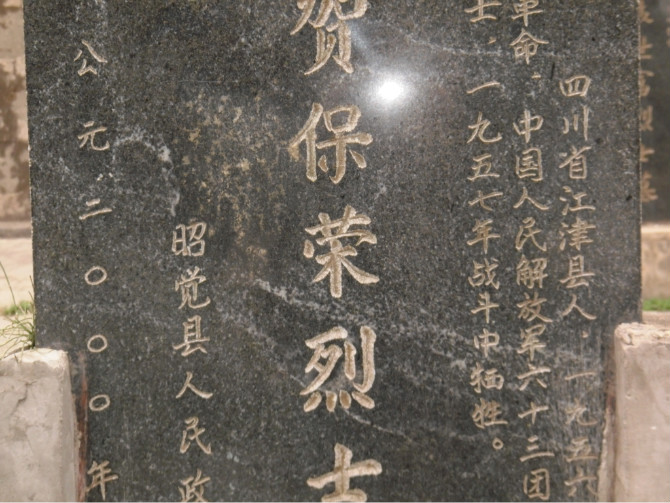 四川省江津县人．一九五六
革命．中国人民解放军六十三团
士．一九五七年战斗中牺牲。
贺保荣烈士
昭觉县人民政
公元二〇〇〇年